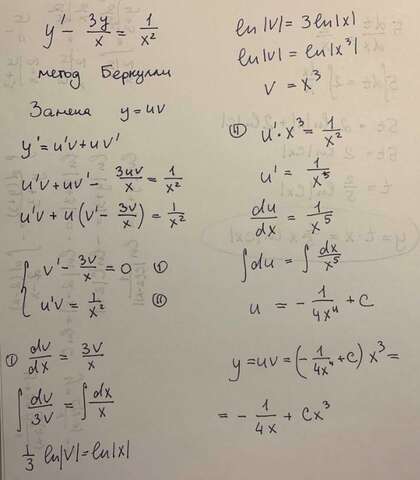 y' - 3y/x = 1/x²
метод Бернулли
Замена y = uv
y' = u'v + uv'
u'v + uv' - 3uv/x = 1/x²
u'v + u(v' - 3v/x) = 1/x²
{ v' - 3v/x = 0 (I)
u'v = 1/x² (II)
(I) dv/dx = 3v/x
∫ dv/3v = ∫ dx/x
1/3 ln|v| = ln|x|
ln|v| = 3ln|x|
ln|v| = ln|x³|
v = x³
(II) u'·x³ = 1/x²
u' = 1/x⁵
du/dx = 1/x⁵
∫du = ∫ dx/x⁵
u = - 1/4x⁴ + C
y = uv = (- 1/4x⁴ + C) x³ =
= - 1/4x + Cx³